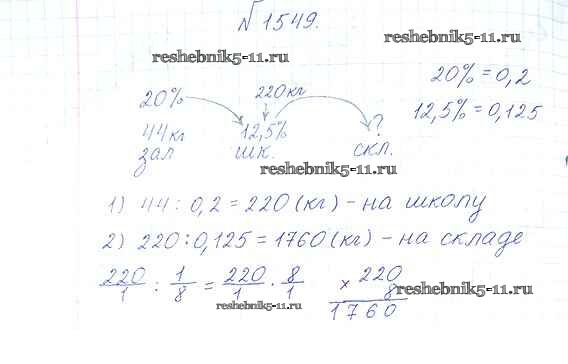 №1549.
reshebnik5-11.ru
reshebnik5-11.ru
20% 220кг ?
20% = 0,2
12,5% = 0,125
44кг 12,5%
зал шк. скл.
reshebnik5-11.ru
1) 44 : 0,2 = 220 (кг) - на школу
2) 220 : 0,125 = 1760 (кг) - на складе
220/1 : 1/8 = 220/1 · 8/1
× 220
8
1760
reshebnik5-11.ru
reshebnik5-11.ru